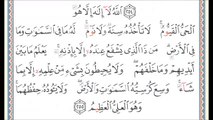 اللَّهُ لَا إِلَٰهَ إِلَّا هُوَ
الْحَيُّ الْقَيُّومُ لَا تَأْخُذُهُ سِنَةٌ وَلَا نَوْمٌ لَهُ مَا فِي السَّمَاوَاتِ وَمَا
فِي الْأَرْضِ مَنْ ذَا الَّذِي يَشْفَعُ عِنْدَهُ إِلَّا بِإِذْنِهِ يَعْلَمُ مَا بَيْنَ
أَيْدِيهِمْ وَمَا خَلْفَهُمْ وَلَا يُحِيطُونَ بِشَيْءٍ مِنْ عِلْمِهِ إِلَّا بِمَا
شَاءَ وَسِعَ كُرْسِيُّهُ السَّمَاوَاتِ وَالْأَرْضَ وَلَا يَئُودُهُ حِفْظُهُمَا
وَهُوَ الْعَلِيُّ الْعَظِيمُ